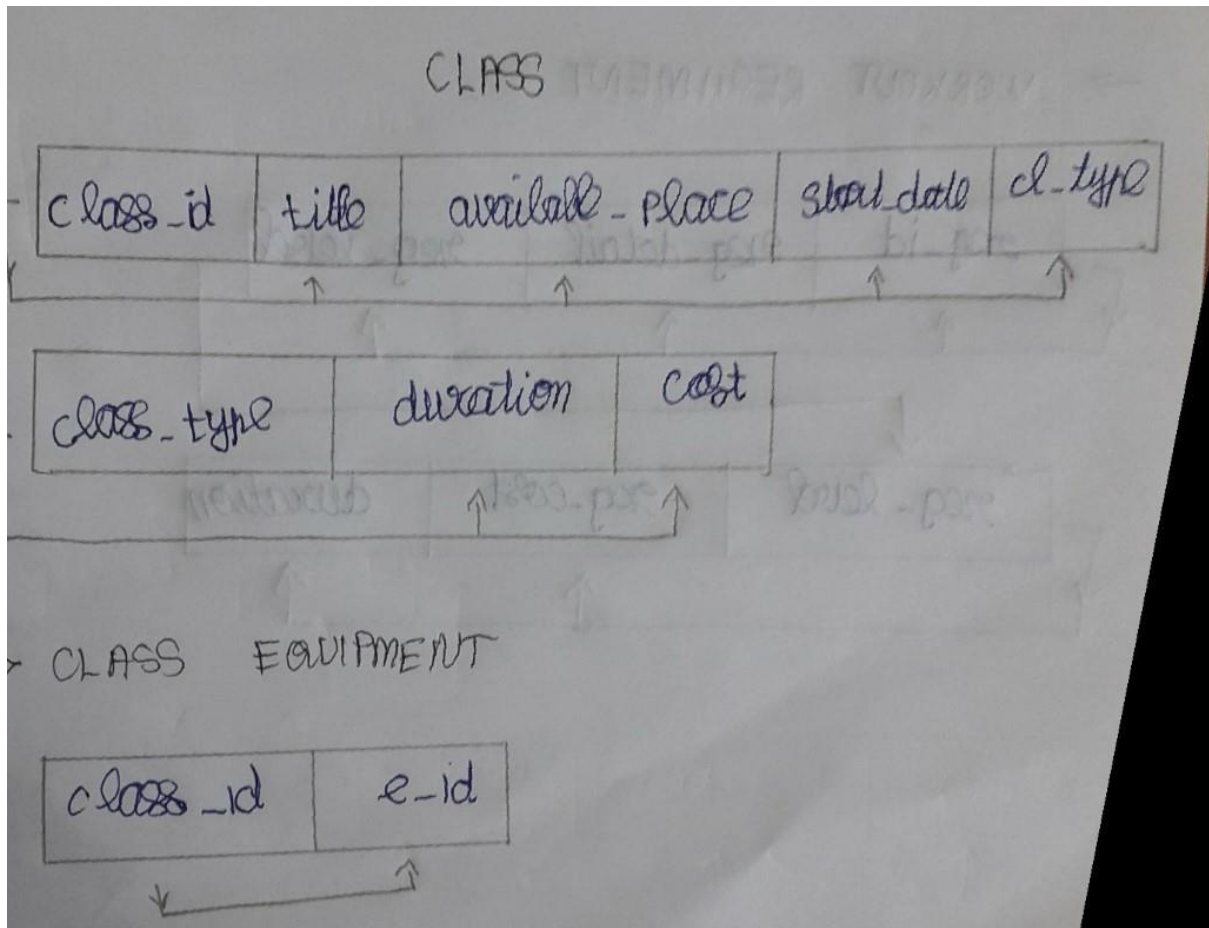 CLASS
class_id title available_place start_date cl_type
class_type duration cost
CLASS EQUIPMENT
class_id e_id